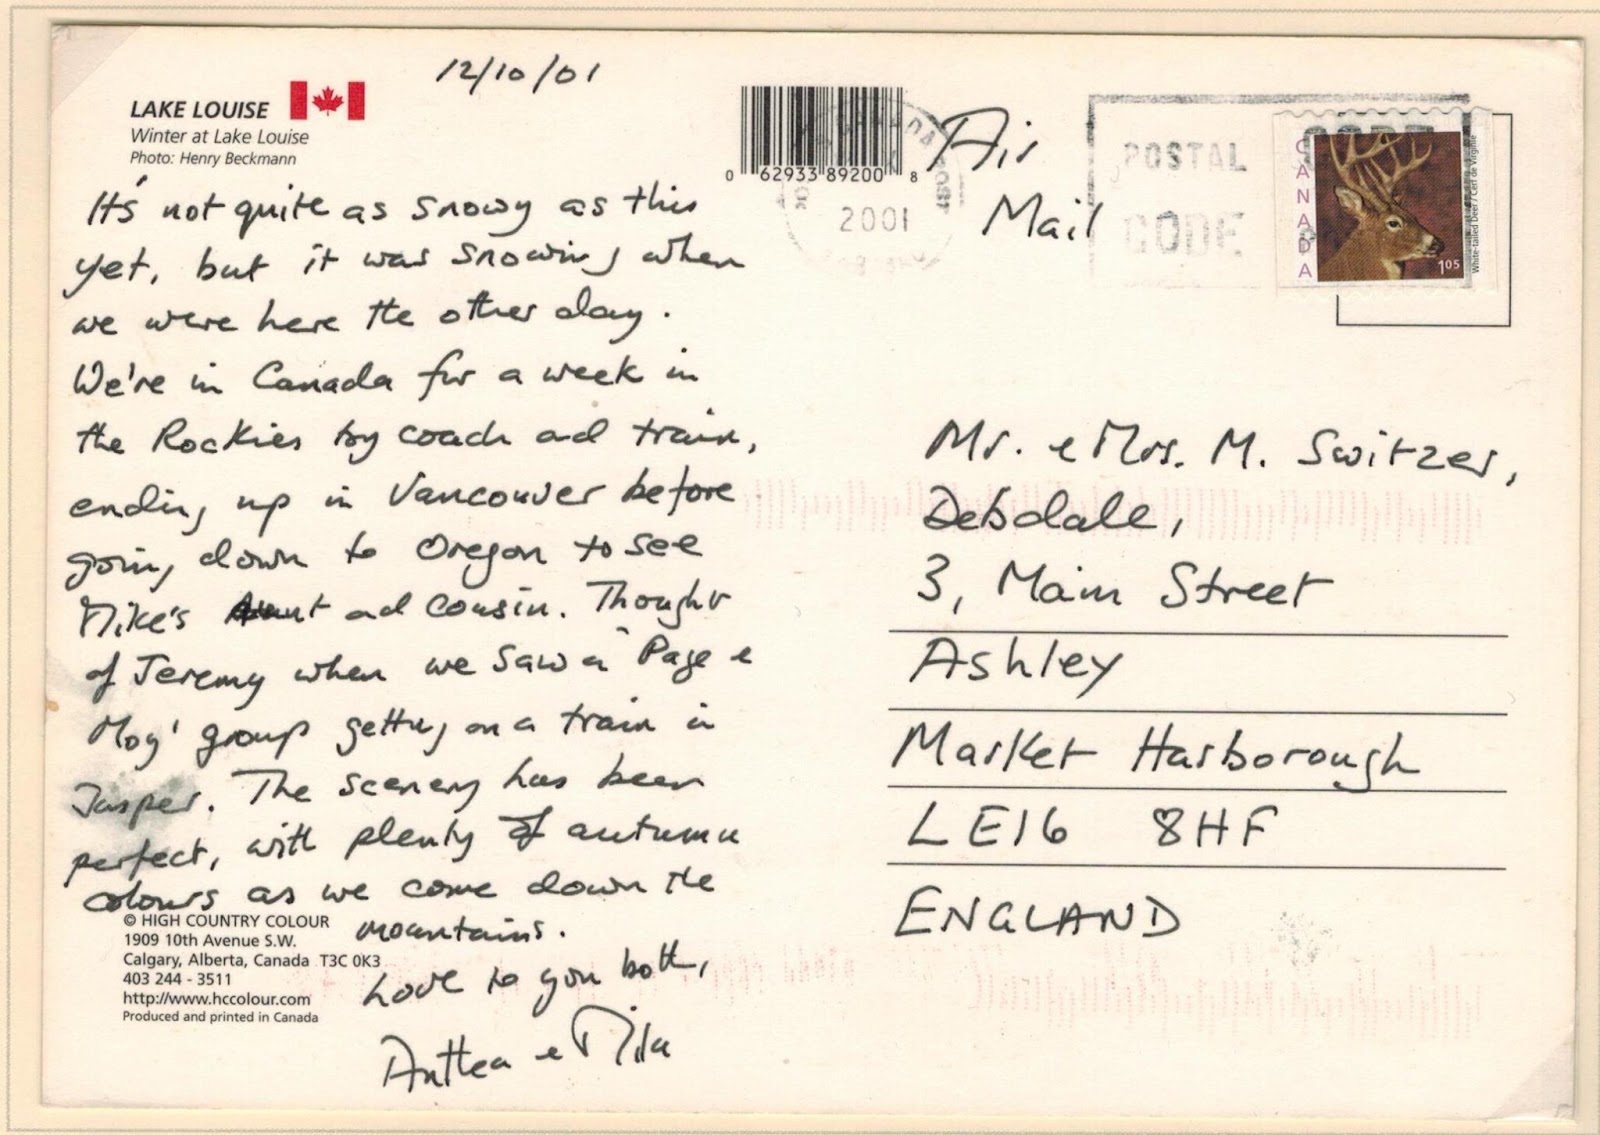 12/10/01
LAKE LOUISE
Winter at Lake Louise
Photo: Henry Beckmann
It's not quite as snowy as this
yet, but it was snowing when
we were here the other day.
We're in Canada for a week in
the Rockies by coach and train,
ending up in Vancouver before
going down to Oregon to see
Mike's Aunt and cousin. Thought
of Jeremy when we saw a 'Page &
Moy' group getting on a train in
Jasper. The scenery has been
perfect, with plenty of autumn
colours as we come down the
mountains.
Love to you both,
Anthea & Mike
© HIGH COUNTRY COLOUR
1909 10th Avenue S.W.
Calgary, Alberta, Canada T3C 0K3
403 244 - 3511
http://www.hccolour.com
Produced and printed in Canada
0 62933 89200 8
CANADA
2001
Air
Mail
POSTAL CODE
CODE
CANADA
White-tailed Deer / Cerf de Virginie
105
Mr. & Mrs. M. Switzer,
Debdale,
3, Main Street
Ashley
Market Harborough
LE16 8HF
ENGLAND